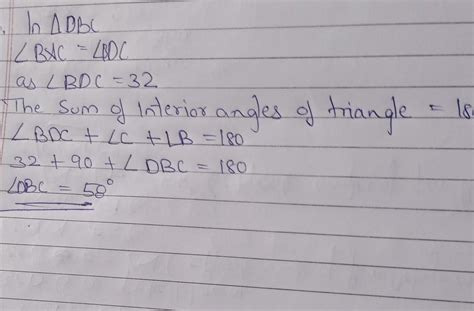 In △DBC
∠BAC = ∠BDC
as ∠BDC = 32
The Sum of Interior angles of triangle = 18
∠BDC + ∠C + ∠B = 180
32 + 90 + ∠DBC = 180
∠DBC = 58°